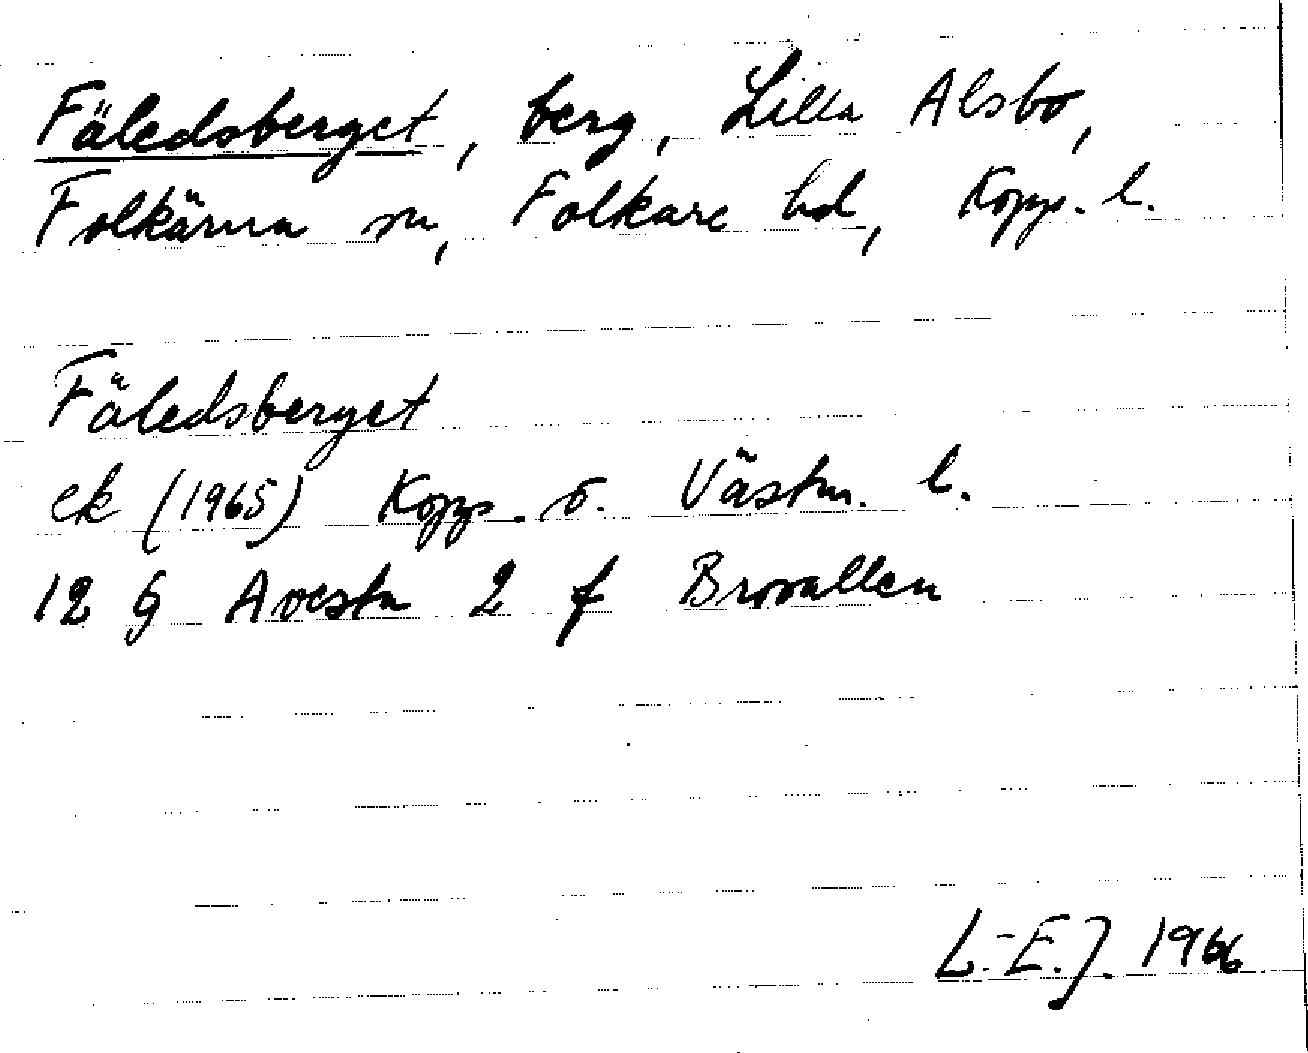 Fäledsberget, berg, Lilla Alsbo,
Folkärna sn, Folkare hd, Kopp. l.
Fäledsberget
ek (1965) Kopp. o. Västm. l.
12 G Avesta 2 f Brovallen
L.-E.J. 1966